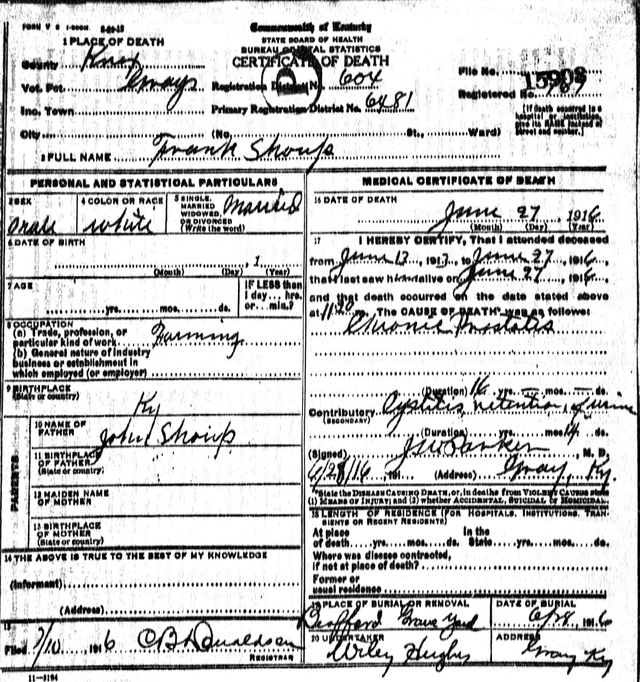 FORM V S 1-500M. 5-20-13
Commonwealth of Kentucky
STATE BOARD OF HEALTH
BUREAU OF VITAL STATISTICS
CERTIFICATE OF DEATH
1 PLACE OF DEATH
County Knox
Vot. Pct. Grays
Inc. Town
City (No. St., Ward)
Registration District No. 604
Primary Registration District No. 6481
File No. 15908
Registered No.
[If death occurred in a
hospital or institution,
give its NAME instead of
street and number.]
2 FULL NAME Frank Shoup
PERSONAL AND STATISTICAL PARTICULARS
3 SEX
male
4 COLOR OR RACE
white
5 SINGLE,
MARRIED
WIDOWED,
OR DIVORCED
(Write the word)
Married
6 DATE OF BIRTH
, 1
(Month) (Day) (Year)
7 AGE
yrs. mos. ds.
IF LESS than
1 day... hrs.
or... min.?
8 OCCUPATION
(a) Trade, profession, or
particular kind of work Farming
(b) General nature of industry
business or establishment in
which employed (or employer)
9 BIRTHPLACE
(State or country)
Ky
PARENTS
10 NAME OF
FATHER
John Shoup
11 BIRTHPLACE
OF FATHER
(State or country)
12 MAIDEN NAME
OF MOTHER
13 BIRTHPLACE
OF MOTHER
(State or country)
14 THE ABOVE IS TRUE TO THE BEST OF MY KNOWLEDGE
(Informant)
(Address)
15
Filed 7/10 1916 C B Donaldson
REGISTRAR
11-3184
MEDICAL CERTIFICATE OF DEATH
16 DATE OF DEATH
June 27, 1916
(Month) (Day) (Year)
17 I HEREBY CERTIFY, That I attended deceased
from June 13, 1913, to June 27, 1916
that I last saw h alive on June 27, 1916,
and that death occurred on the date stated above
at m. The CAUSE OF DEATH* was as follows:
Chronic Prostatis
(Duration) 16 yrs. — mos. — ds.
Contributory Cystitis retention urine
(SECONDARY)
(Duration) yrs. mos. 14 ds.
(Signed) J W Parker M. D.
6/28/16 191 (Address) Gray, Ky.
*State the DISEASE CAUSING DEATH, or, in deaths from VIOLENT CAUSES state
(1) MEANS OF INJURY; and (2) whether ACCIDENTAL, SUICIDAL or HOMICIDAL.
18 LENGTH OF RESIDENCE (FOR HOSPITALS, INSTITUTIONS, TRAN-
SIENTS OR RECENT RESIDENTS)
At place In the
of death yrs. mos. ds. State yrs. mos. ds.
Where was disease contracted,
if not at place of death?
Former or
usual residence
19 PLACE OF BURIAL OR REMOVAL
Grave Yard
DATE OF BURIAL
6/28, 1916
20 UNDERTAKER
Wiley Hughes
ADDRESS
Gray Ky